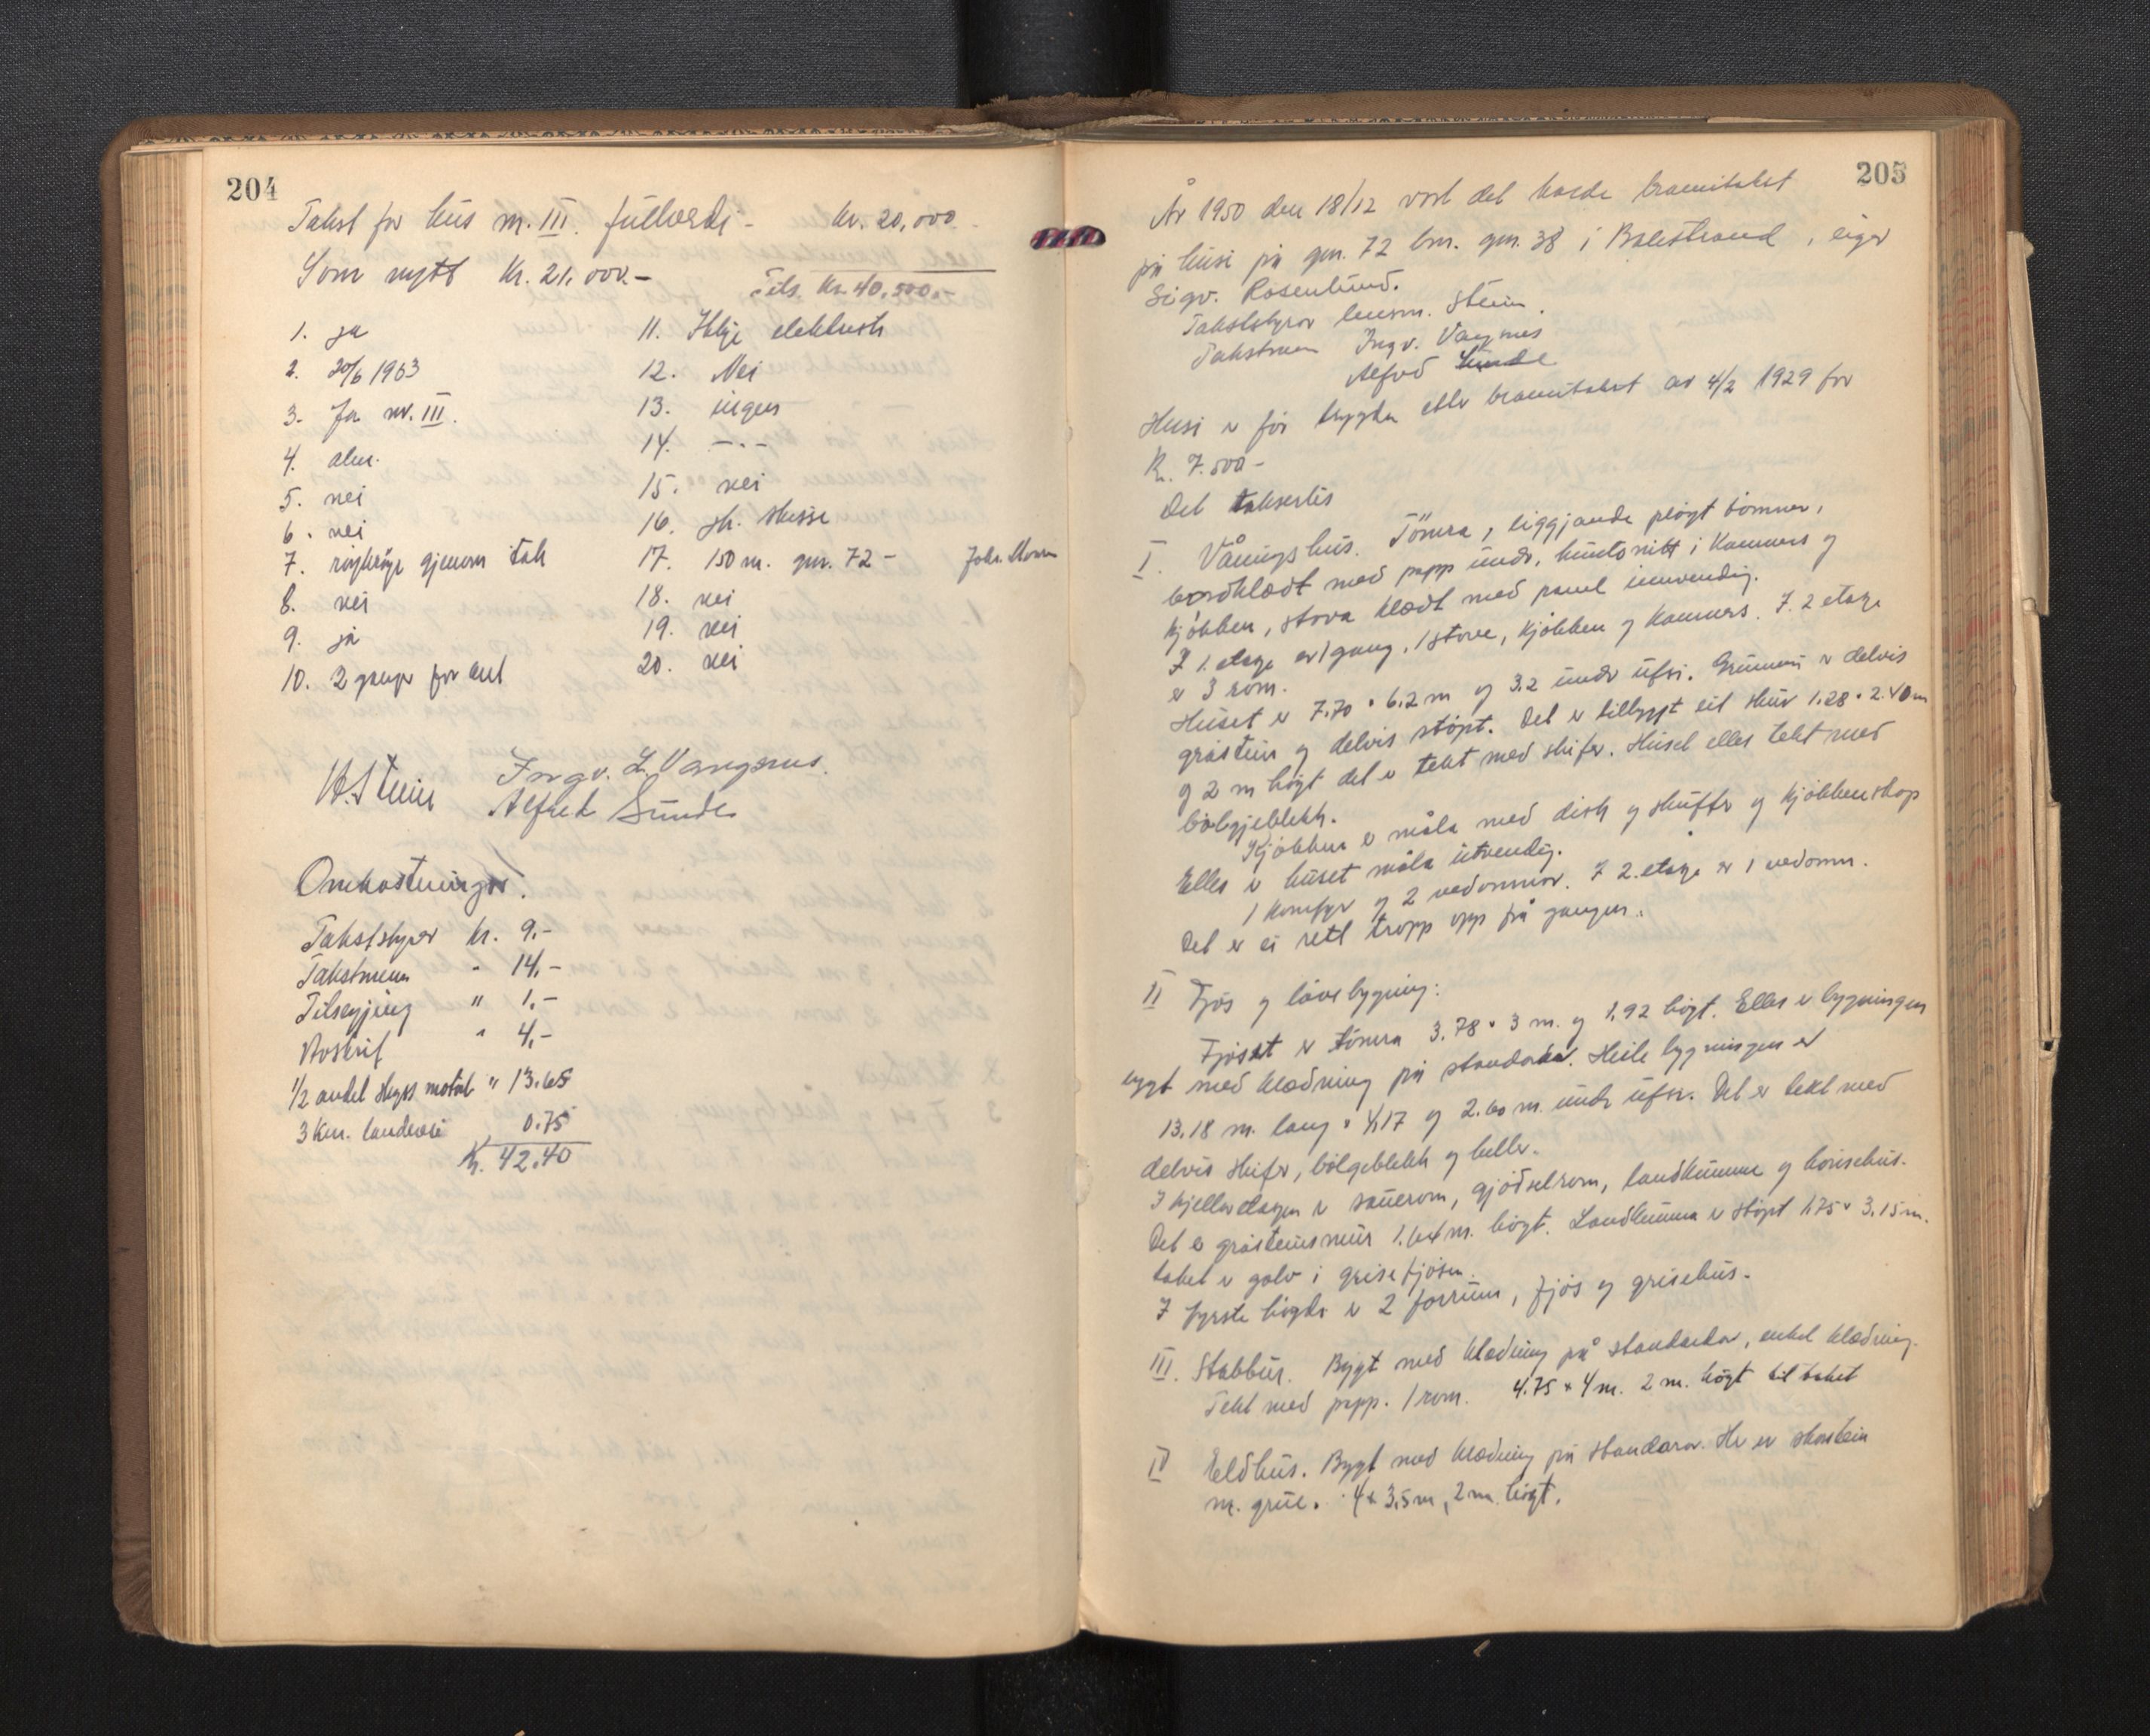 204
Takst for hus m. III fullverdi - kr. 20,000
Som nytt kr. 21.000.-
Tils. kr. 40.500.-
1. ja
2. 20/6 1963
3. Ja nr. III.
4. alm.
5. nei
6. nei
7. røykrøyr gjenom tak
8. nei
9. ja
10. 2 ganger for aut
11. Ikkje elektrisk
12. Nei
13. ingen
14. -.-
15. nei
16. sk. skisse
17. 150 m. gnr. 72 - Johs.
18. nei
19. nei
20. nei
Stein Ingv. L. Vangsnes.
Alfred Sunde
Omkostninger.
Takststyrar kr. 9.-
Takstmenn " 14.-
Tilseying " 1.-
Avskrift " 4.-
1/2 andel skyss motorb " 13.65
3 km. landevei 0.75
Kr. 42.40
205
År 1950 den 18/12 vart det halde branntakst
på husi på gnr. 72 bnr. 38 i Balestrand, eigar
Sigv. Rosenlund.
Takststyrar lensm. Stein.
Takstmenn Ingv. Vangsnes
Alfred Sunde
Husi er før trygda etter branntakst av 4/2 1929 for
Kr. 7.500-
Det taksertes
I. Våningshus. Tömra, liggjande pløgt tömmer,
bordklædt med papp under, huntonitt i kammers og
kjökken, stova klædt med panel innvendig.
I 1. etage er 1 gang, 1 stove, kjökken og kammers. I 2 etage
er 3 rom.
Huset er 7.70 × 6.2 m og 3.2 under ufsi. Grunnen er delvis
gråstein og delvis støpt. Det er tilbygt eit skur 1.28 × 2.40 m
og 2 m högt det er tekt med skifer. Huset elles tekt med
bølgjeblekk.
Kjökken er måla med disk og skuffer og kjökkenskap
Elles er huset måla utvendig.
1 komfyr og 2 vedomnar. I 2. etage er 1 vedomn.
Det er ei rett tropp opp frå gangen.
II Fjös og låvebygning:
Fjöset er tömra 3.78 × 3 m. og 1.92 högt. Elles er bygningen
bygt med klædning på standarar. Heile bygningen er
13.18 m. lang × 4.17 og 2.60 m. under ufsi. Det er tekt med
delvis skifer, bölgeblekk og heller.
I kjelleretagen er sauerom, gjødselrom, landkumme og hønsehus.
Det er gråsteinsmur 1.64 m. högt. Landkumma er støpt 1.75 × 3.15 m.
taket er golv i grisefjösen.
I fyrste høgda er 2 forrum, fjös og grisehus.
III. Stabbur. Bygt med klædning på standarar, enkel klædning.
Tekt med papp. 1 rom. 4.75 × 4 m. 2 m. högt til taket
IV Eldhus. Bygt med klædning på standarar. Her er skorstein
m. grue. 4 × 3,5 m, 2 m. högt.